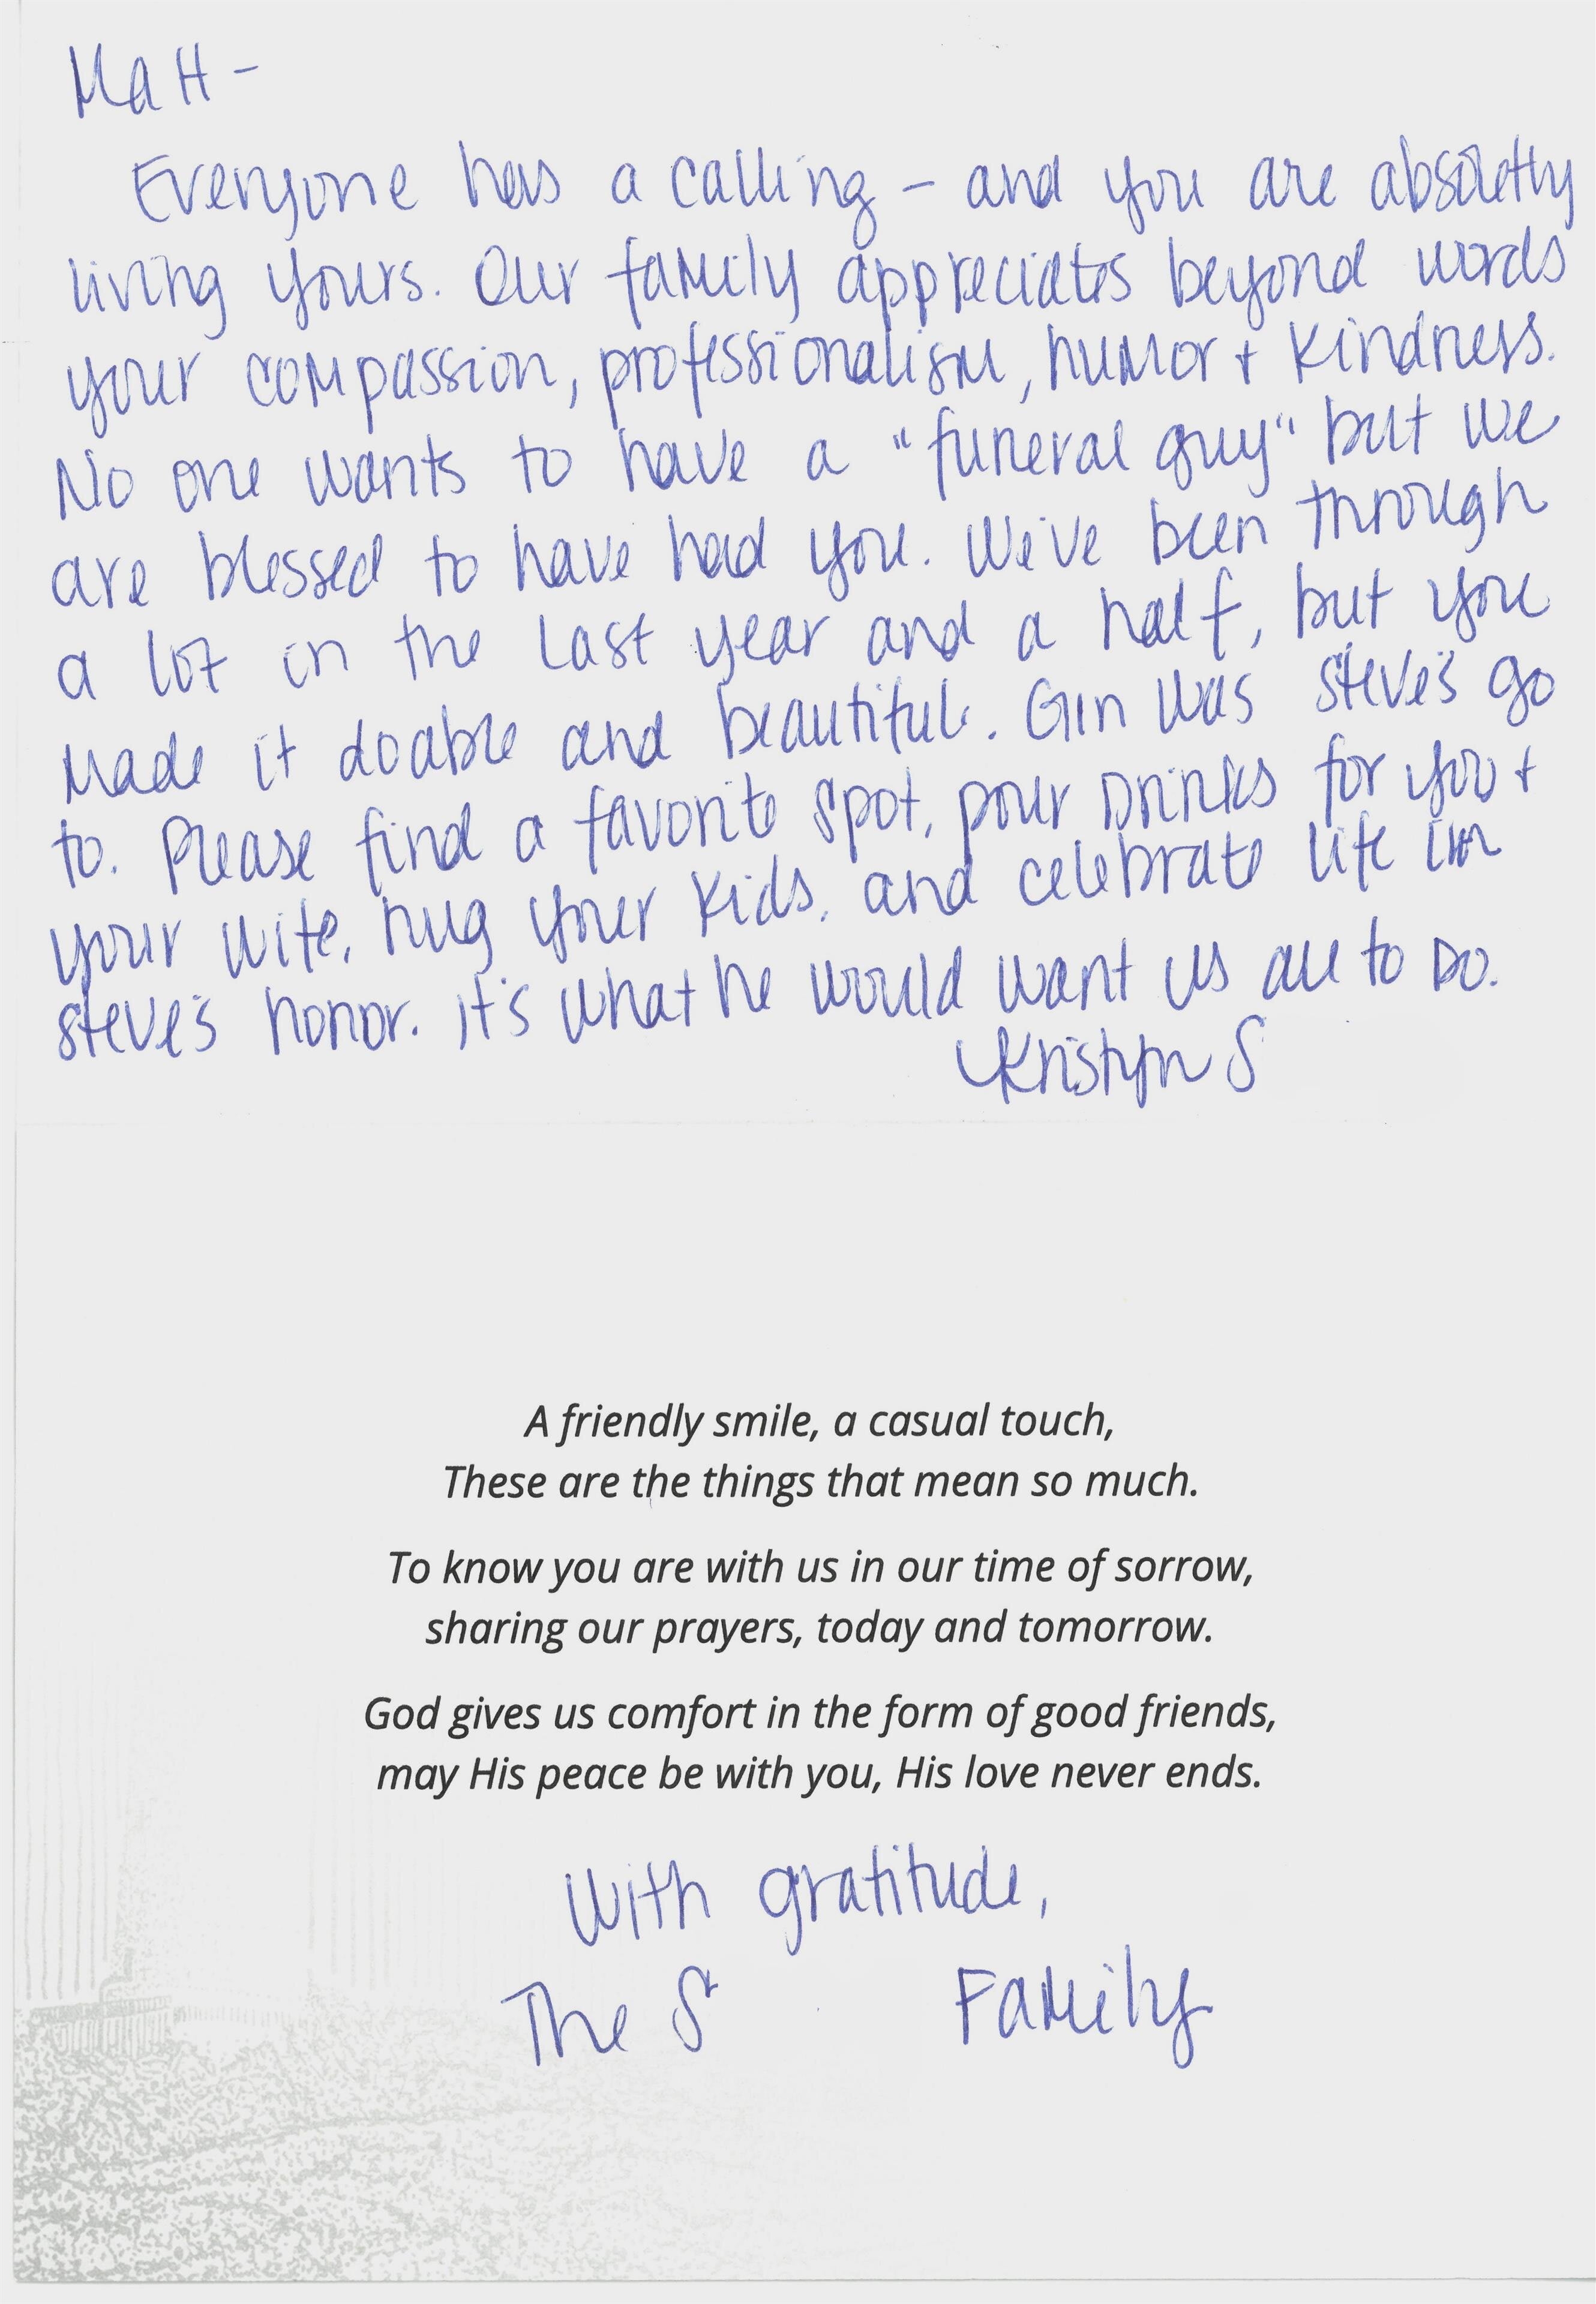 Matt -
Everyone has a calling - and you are absolutely
living yours. Our family appreciates beyond words
your compassion, professionalism, humor + kindness.
No one wants to have a "funeral guy" but we
are blessed to have had you. We've been through
a lot in the last year and a half, but you
made it doable and beautiful. Gin was Steve's go
to. Please find a favorite spot, pour drinks for you +
your wife, hug your kids, and celebrate life in
Steve's honor. It's what he would want us all to do.
Kristyn S
A friendly smile, a casual touch,
These are the things that mean so much.
To know you are with us in our time of sorrow,
sharing our prayers, today and tomorrow.
God gives us comfort in the form of good friends,
may His peace be with you, His love never ends.
With gratitude,
The S Family